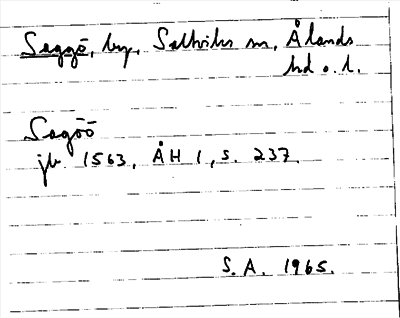 Saggö, by, Saltviks sn, Ålands
hd o. l.
Sagöö
jb. 1563, ÅH 1, s. 237.
S.A. 1965.